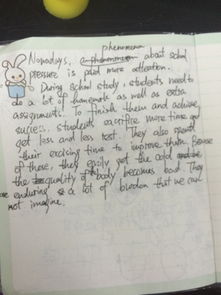 phenomenon
Nowadays, phenomenon about school
pressure is paid more attention.
During school study, students need to
do a lot of homework as well as extra
assignments. To finish them and achieve
success, students sacrifice more time and
get less and less rest. They also spend
their exercising time to improve them. Because
of these, they easily get the cold and
the quality of body becomes bad. They
are enduring a lot of burden that we can
not imagine.